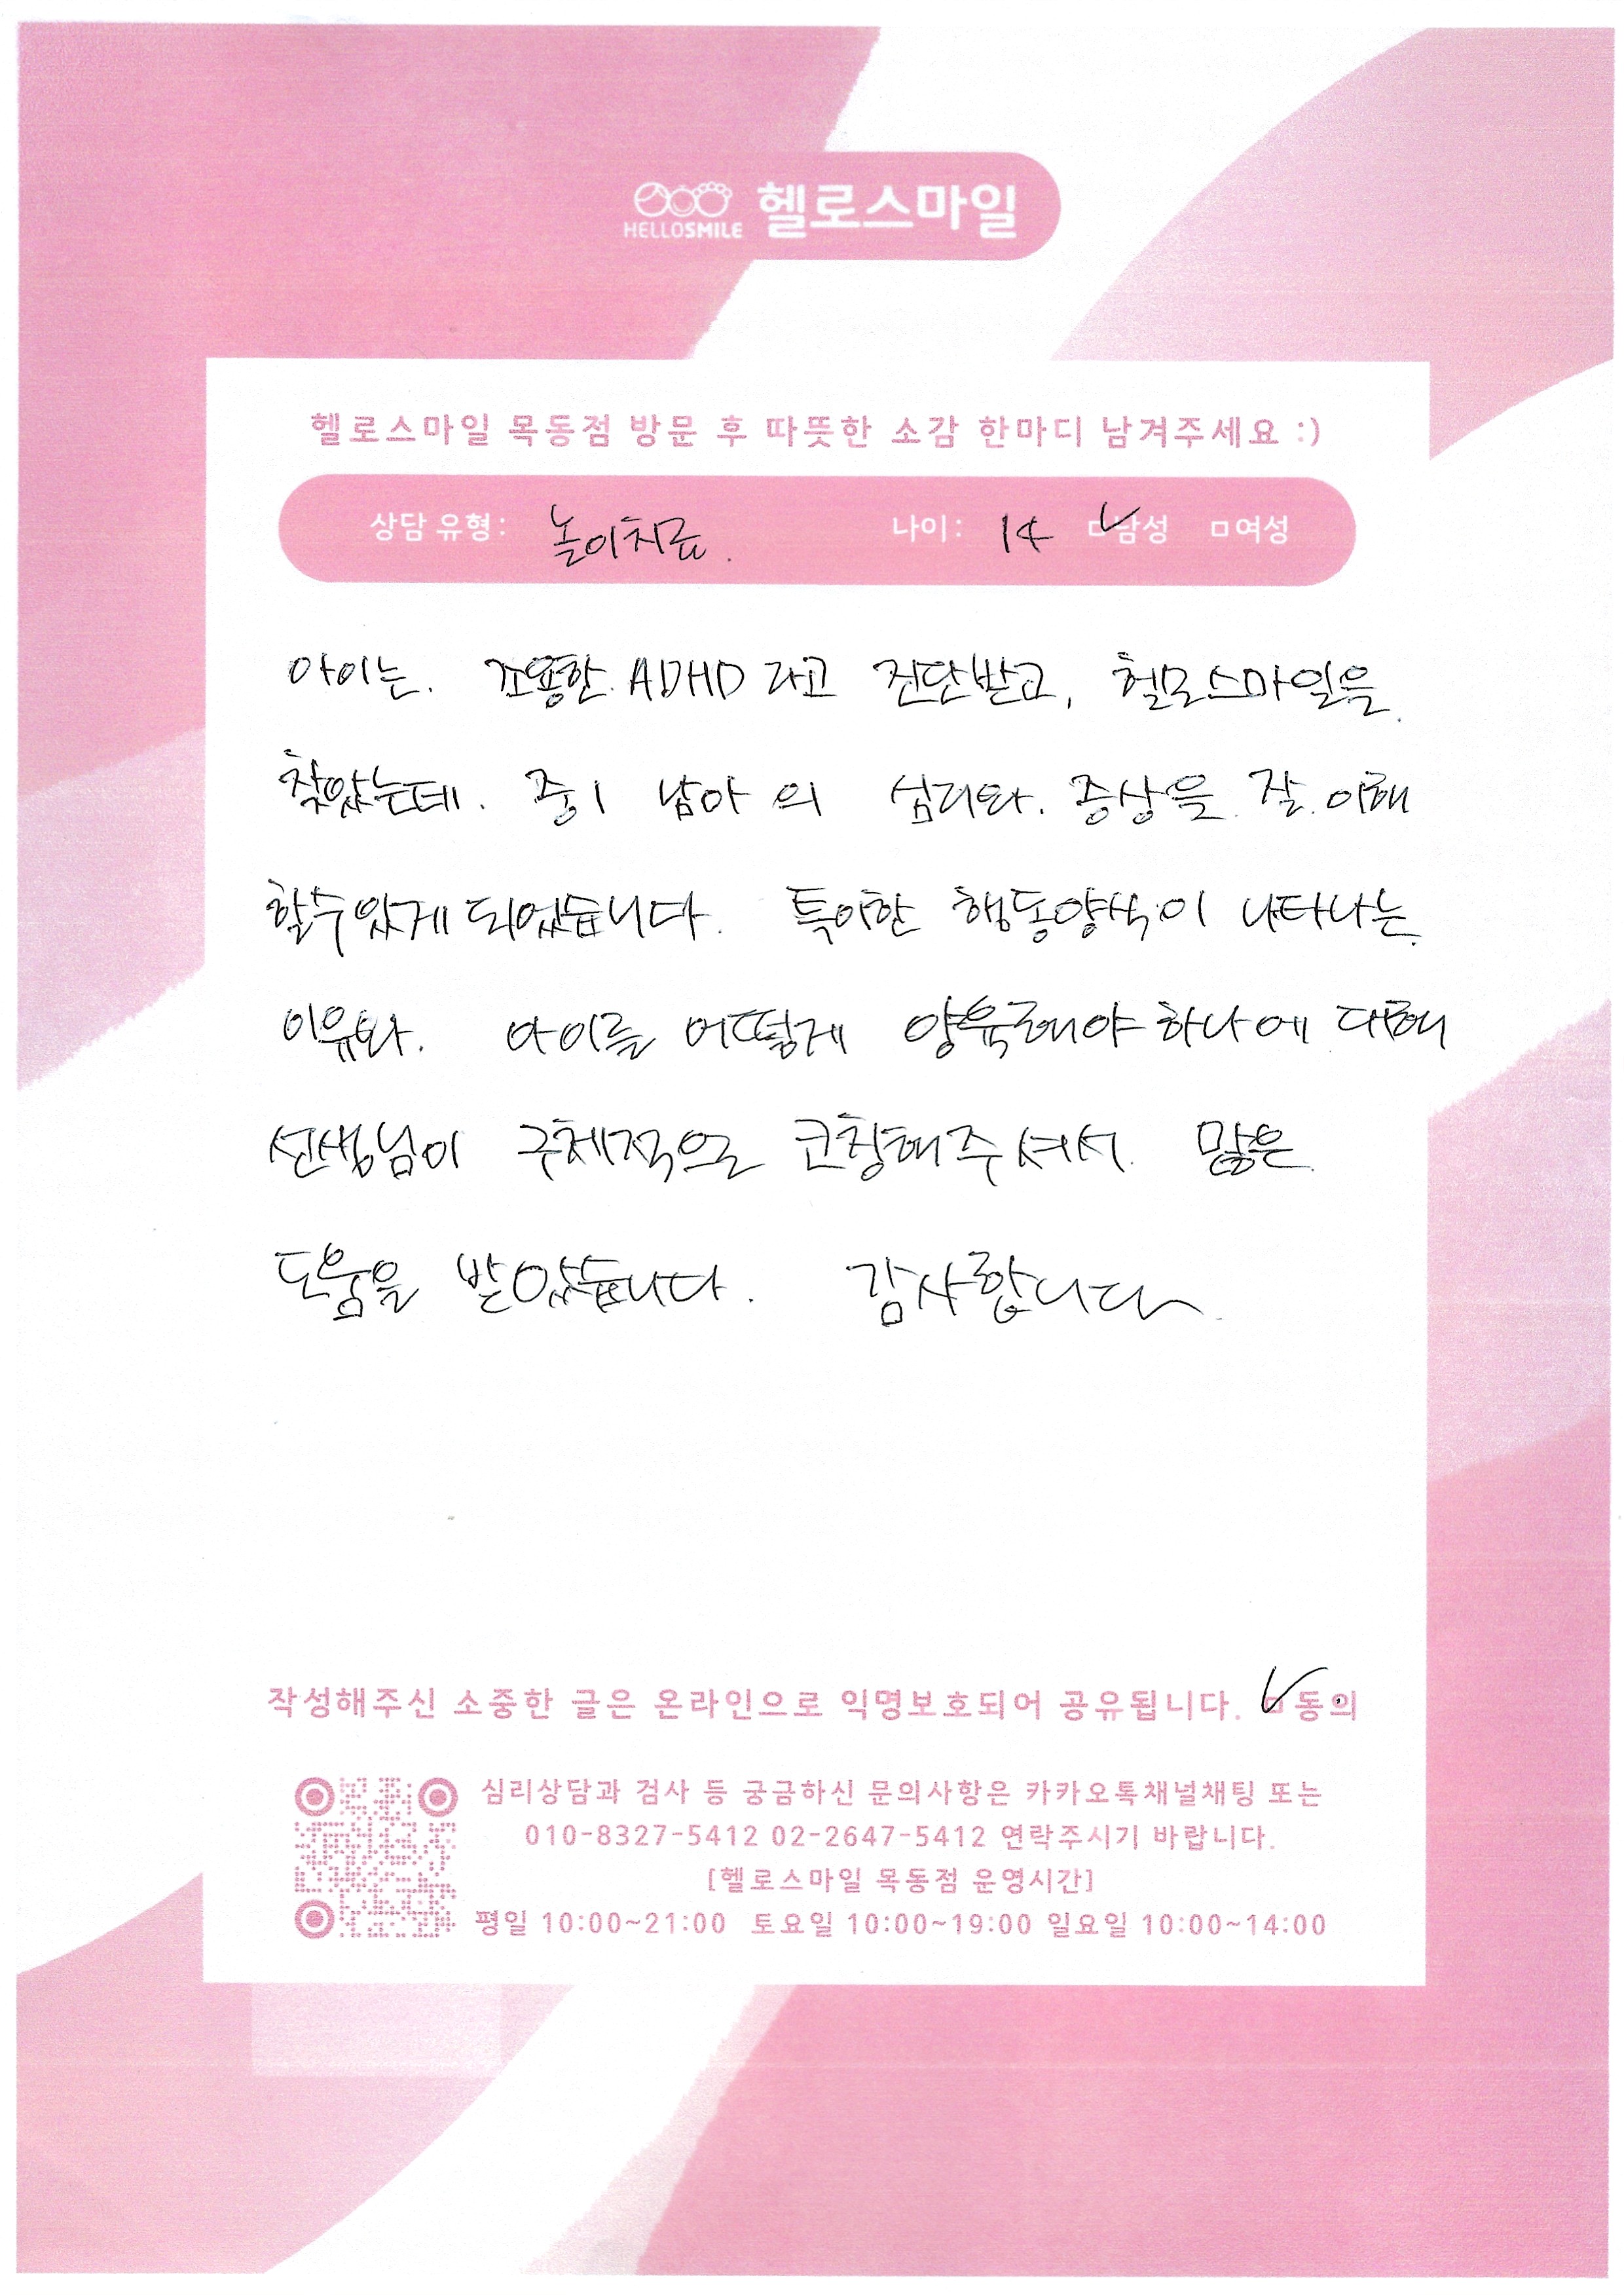 HELLOSMILE 헬로스마일
헬로스마일 목동점 방문 후 따뜻한 소감 한마디 남겨주세요 :)
상담 유형: 놀이치료. 나이: 14 ☑남성 □여성
아이는. 조용한 ADHD 라고 진단받고, 헬로스마일을
찾았는데. 중1 남아 의 심리와. 증상을 잘 이해
할수있게 되었습니다. 특이한 행동양식이 나타나는
이유와. 아이를 어떻게 양육해야 하나에 대해
선생님이 구체적으로 코칭해주셔서 많은
도움을 받았습니다. 감사합니다.
작성해주신 소중한 글은 온라인으로 익명보호되어 공유됩니다. ☑동의
심리상담과 검사 등 궁금하신 문의사항은 카카오톡채널채팅 또는
010-8327-5412 02-2647-5412 연락주시기 바랍니다.
[헬로스마일 목동점 운영시간]
평일 10:00~21:00 토요일 10:00~19:00 일요일 10:00~14:00